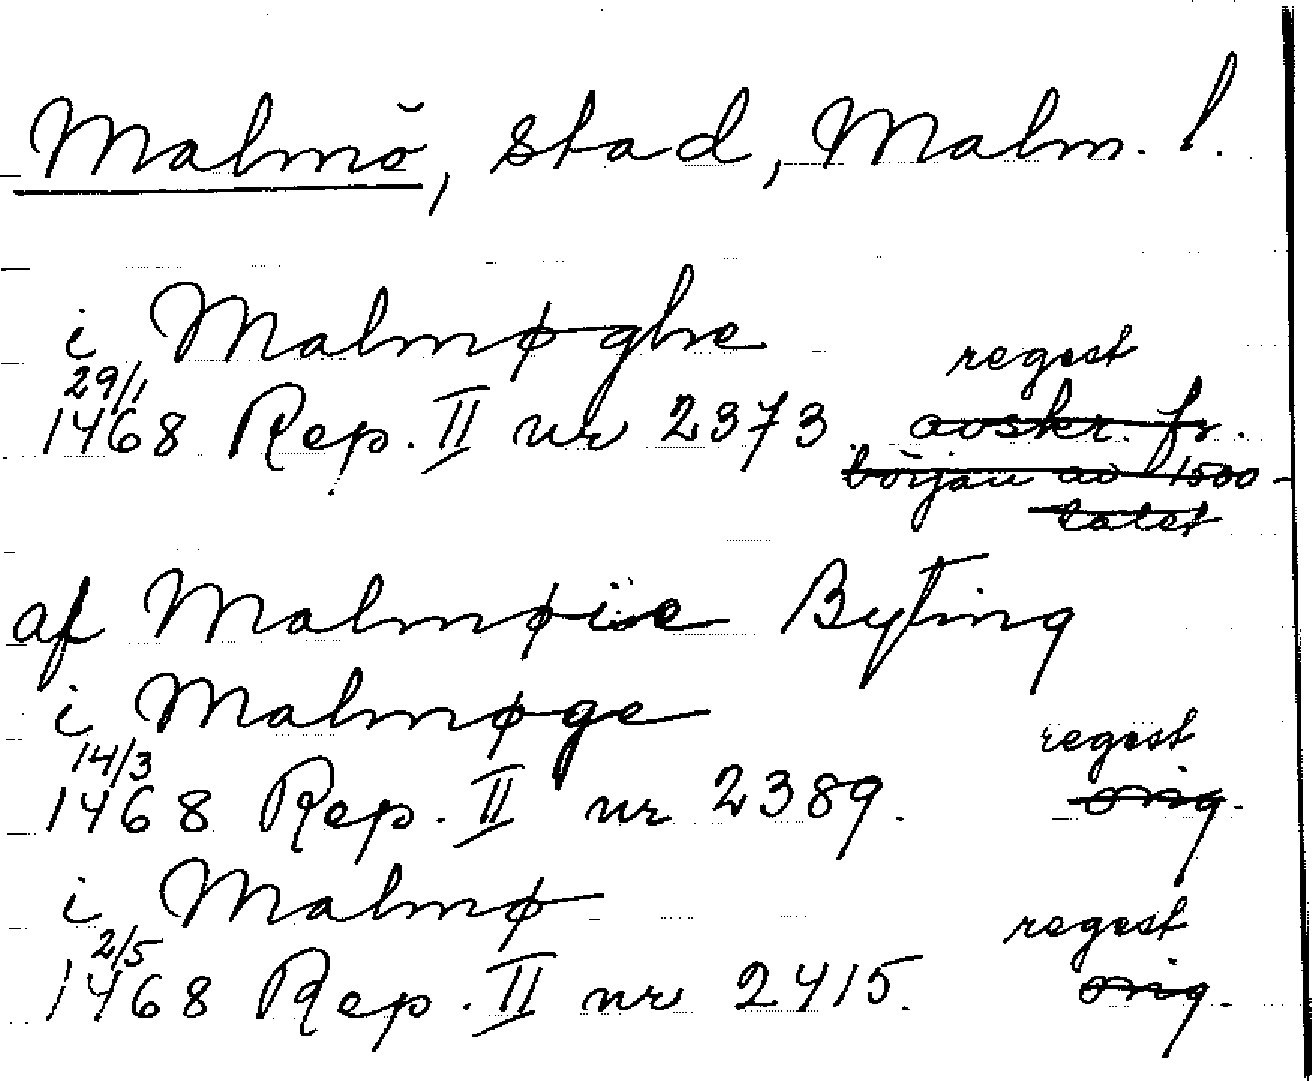 Malmö, stad, Malm. l.
i Malmøghe
29/1
regest
1468 Rep. II nr 2373. avskr. fr.
början av 1500-
talet
af Malmøie Byting
i Malmøge
14/3
regest
1468 Rep. II nr 2389. orig.
i Malmø
2/5
regest
1468 Rep. II nr 2415. orig.